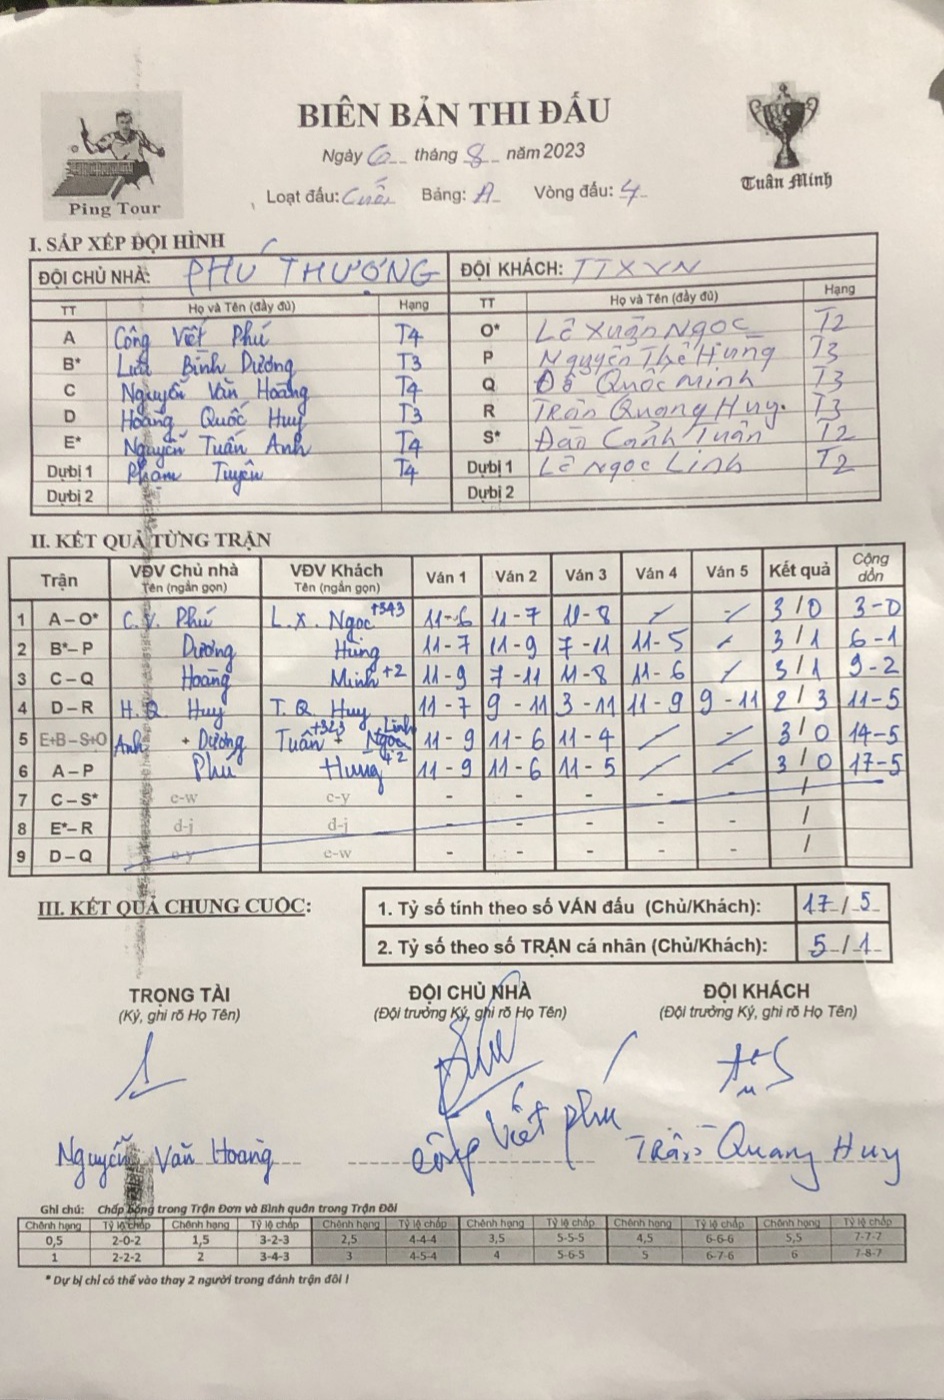 BIÊN BẢN THI ĐẤU
Ngày 6 tháng 8 năm 2023
Ping Tour
Tuấn Minh
Loạt đấu: Cuối Bảng: A Vòng đấu: 4
I. SẮP XẾP ĐỘI HÌNH
ĐỘI CHỦ NHÀ: PHÚ THƯỢNG ĐỘI KHÁCH: TTXVN
TT Họ và Tên (đầy đủ) Hạng TT Họ và Tên (đầy đủ) Hạng
A Công Viết Phú T4 O* Lê Xuân Ngọc T2
B* Lưu Bình Dương T3 P Nguyễn Thế Hùng T3
C Nguyễn Văn Hoàng T4 Q Đỗ Quốc Minh T3
D Hoàng Quốc Huy T3 R Trần Quang Huy. T3
E* Nguyễn Tuấn Anh T4 S* Đào Cảnh Tuân T2
Dựbị 1 Phạm Tuyên T4 Dựbị 1 Lê Ngọc Linh T2
Dựbị 2 Dựbị 2
II. KẾT QUẢ TỪNG TRẬN
Trận VĐV Chủ nhà Tên (ngắn gọn) VĐV Khách Tên (ngắn gọn) Ván 1 Ván 2 Ván 3 Ván 4 Ván 5 Kết quả Cộng dồn
1 A – O* C. V. Phú L. X. Ngọc +343 11-6 11-7 11-8 / / 3/0 3-0
2 B*– P Dương Hùng 11-7 11-9 7-11 11-5 / 3/1 6-1
3 C – Q Hoàng Minh +2 11-9 7-11 11-8 11-6 / 3/1 9-2
4 D – R H. Q. Huy T. Q. Huy 11-7 9-11 3-11 11-9 9-11 2/3 11-5
5 E+B – S+O Anh + Dương Tuân +323 + Ngọc Linh 11-9 11-6 11-4 / / 3/0 14-5
6 A – P Phú Hùng +2 11-9 11-6 11-5 / / 3/0 17-5
7 C – S* c-w c-y - - - - - /
8 E*– R d-j d-j - - - - - /
9 D – Q c-w - - - - - /
III. KẾT QUẢ CHUNG CUỘC:
1. Tỷ số tính theo số VÁN đấu (Chủ/Khách): 17/5
2. Tỷ số theo số TRẬN cá nhân (Chủ/Khách): 5/1
TRỌNG TÀI ĐỘI CHỦ NHÀ ĐỘI KHÁCH
(Ký, ghi rõ Họ Tên) (Đội trưởng Ký, ghi rõ Họ Tên) (Đội trưởng Ký, ghi rõ Họ Tên)
Nguyễn Văn Hoàng Công Viết Phú Trần Quang Huy
Ghi chú: Chấp bóng trong Trận Đơn và Bình quân trong Trận Đôi
Chênh hạng Tỷ lệ chấp Chênh hạng Tỷ lệ chấp Chênh hạng Tỷ lệ chấp Chênh hạng Tỷ lệ chấp Chênh hạng Tỷ lệ chấp Chênh hạng Tỷ lệ chấp
0,5 2-0-2 1,5 3-2-3 2,5 4-4-4 3,5 5-5-5 4,5 6-6-6 5,5 7-7-7
1 2-2-2 2 3-4-3 3 4-5-4 4 5-6-5 5 6-7-6 6 7-8-7
* Dự bị chỉ có thể vào thay 2 người trong đánh trận đôi !